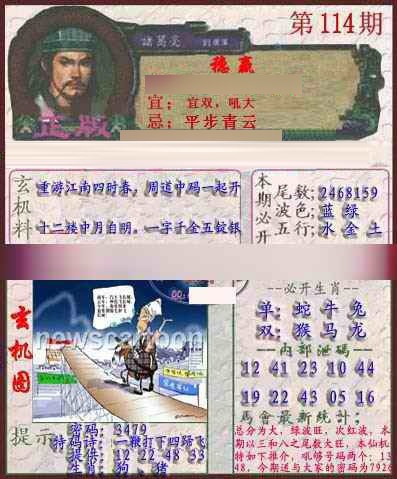 第114期
諸葛亮
稳赢
正版
宜：宜双，吼大
忌：平步青云
玄机料
重游江南四时春，周道中码一起开
十二楼中月自明。一字千金五锭银
本期必开
尾数:2468159
波色:蓝 绿
五行:水 金 土
玄机图
newscartoon
--必开生肖--
单: 蛇 牛 兔
双: 猴 马 龙
一内部泄码一
12 41 23 10 44
19 22 43 05 16
馬會最新統计;
总分为大，绿波旺，次红波，本
期以三和八之尾数大旺，本仙机
特如下推介，吼够号码两个：13
48，今期送与大家的密码为7926
提示
密码: 3479
特码诗: 一鞭打下四蹄飞
提供: 12 22 48 33
生肖: 狗 . 猪